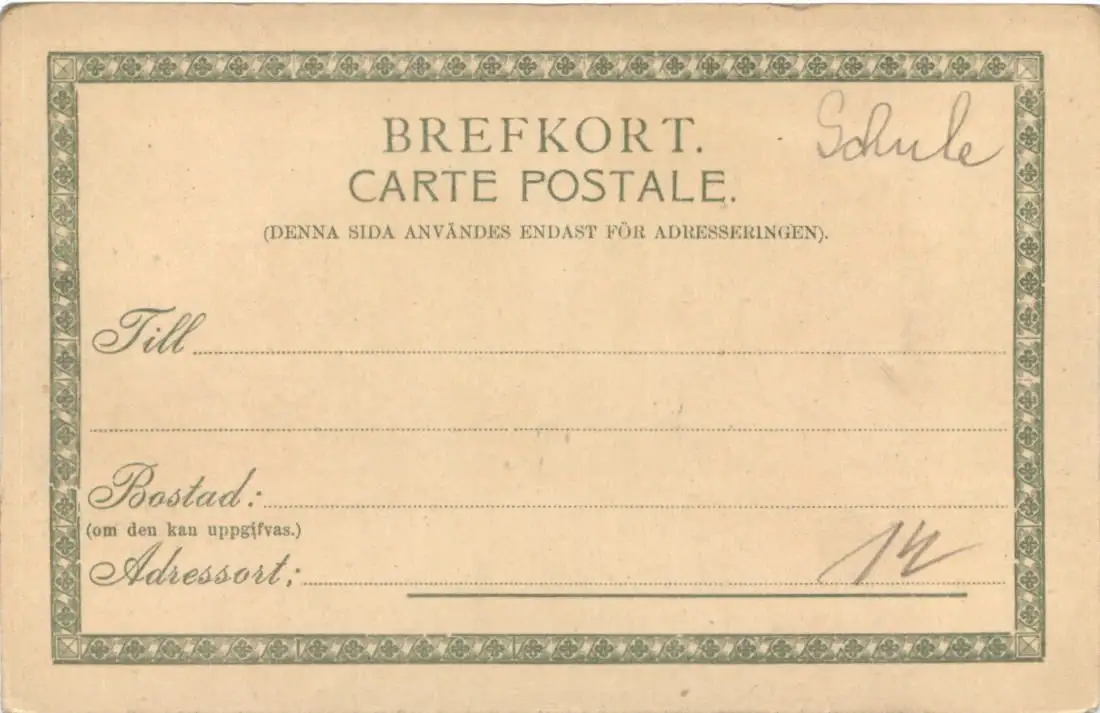 BREFKORT.
Schule
CARTE POSTALE.
(DENNA SIDA ANVÄNDES ENDAST FÖR ADRESSERINGEN).
Till
Bostad:
(om den kan uppgifvas.)
Adressort: